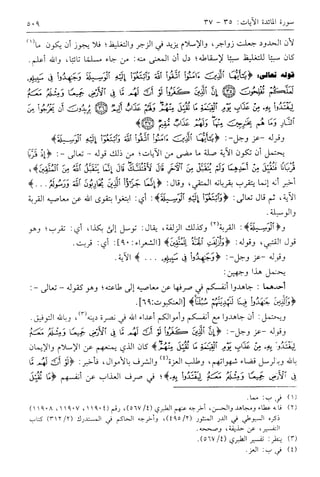 سورة المائدة الآيات: ٣٥ - ٣٧
٥٠٩
لأن الحدود جعلت زواجر، والإسلام يزيد في الزجر والتغليظ؛ فلا يجوز أن يكون ما(١)
كان سببًا للتغليظ سببًا لإسقاطه؛ دل أن المعنى منه: من جاء مسلمًا تائبًا، والله أعلم.
قوله تعالى: ﴿يَٰٓأَيُّهَا ٱلَّذِينَ ءَامَنُوا۟ ٱتَّقُوا۟ ٱللَّهَ وَٱبْتَغُوٓا۟ إِلَيْهِ ٱلْوَسِيلَةَ وَجَٰهِدُوا۟ فِى سَبِيلِهِۦ
لَعَلَّكُمْ تُفْلِحُونَ ﴿٣٥﴾ إِنَّ ٱلَّذِينَ كَفَرُوا۟ لَوْ أَنَّ لَهُم مَّا فِى ٱلْأَرْضِ جَمِيعًا وَمِثْلَهُۥ مَعَهُۥ
لِيَفْتَدُوا۟ بِهِۦ مِنْ عَذَابِ يَوْمِ ٱلْقِيَٰمَةِ مَا تُقُبِّلَ مِنْهُمْ وَلَهُمْ عَذَابٌ أَلِيمٌ ﴿٣٦﴾ يُرِيدُونَ أَن يَخْرُجُوا۟ مِنَ
ٱلنَّارِ وَمَا هُم بِخَٰرِجِينَ مِنْهَا وَلَهُمْ عَذَابٌ مُّقِيمٌ ﴿٣٧﴾﴾
وقوله -عز وجل-: ﴿يَٰٓأَيُّهَا ٱلَّذِينَ ءَامَنُوا۟ ٱتَّقُوا۟ ٱللَّهَ وَٱبْتَغُوٓا۟ إِلَيْهِ ٱلْوَسِيلَةَ﴾
يحتمل أن تكون الآية صلة ما مضى من الآيات؛ من ذلك قوله - تعالى -: ﴿إِذْ قَرَّبَا
قُرْبَانًا فَتُقُبِّلَ مِنْ أَحَدِهِمَا وَلَمْ يُتَقَبَّلْ مِنَ ٱلْءَاخَرِ قَالَ لَأَقْتُلَنَّكَ قَالَ إِنَّمَا يَتَقَبَّلُ ٱللَّهُ مِنَ ٱلْمُتَّقِينَ﴾،
أخبر أنه إنما يتقرب بقربانه المتقي، وقال: ﴿إِنَّمَا جَزَٰٓؤُا۟ ٱلَّذِينَ يُحَارِبُونَ ٱللَّهَ وَرَسُولَهُۥ . . .﴾
الآية، ثم قال تعالى: ﴿يَٰٓأَيُّهَا ٱلَّذِينَ ءَامَنُوا۟ ٱتَّقُوا۟ ٱللَّهَ وَٱبْتَغُوٓا۟ إِلَيْهِ ٱلْوَسِيلَةَ﴾: أي: ابتغوا بتقوى الله عن معاصيه القربة
والوسيلة.
و﴿ٱلْوَسِيلَةَ﴾: القربة(٢) وكذلك الزلفة، يقال: توسل إليّ بكذا، أي: تقرب؛ وهو
قول القتبي، وقوله: ﴿وَأُزْلِفَتِ ٱلْجَنَّةُ لِلْمُتَّقِينَ﴾ [الشعراء: ٩٠] أي: قربت.
وقوله -عز وجل-: ﴿وَجَٰهِدُوا۟ فِى سَبِيلِهِۦ . . .﴾ الآية.
يحتمل هذا وجهين:
أحدهما : جاهدوا أنفسكم في صرفها عن معاصيه إلى طاعته؛ وهو كقوله - تعالى -:
﴿وَٱلَّذِينَ جَٰهَدُوا۟ فِينَا لَنَهْدِيَنَّهُمْ سُبُلَنَا﴾ [العنكبوت: ٦٩].
ويحتمل: أن جاهدوا مع أنفسكم وأموالكم أعداء الله في نصرة دينه(٣)، وبالله التوفيق.
وقوله -عز وجل-: ﴿إِنَّ ٱلَّذِينَ كَفَرُوا۟ لَوْ أَنَّ لَهُم مَّا فِى ٱلْأَرْضِ جَمِيعًا وَمِثْلَهُۥ مَعَهُۥ لِيَفْتَدُوا۟ بِهِۦ
مِنْ عَذَابِ يَوْمِ ٱلْقِيَٰمَةِ مَا تُقُبِّلَ مِنْهُمْ وَلَهُمْ عَذَابٌ أَلِيمٌ﴾ كان الذي يمنعهم عن الإسلام والإيمان
بالله وبالرسل قضاء شهواتهم، وطلب العزة(٤) والشرف بالأموال، فأخبر: ﴿لَوْ أَنَّ لَهُم مَّا
فِى ٱلْأَرْضِ جَمِيعًا وَمِثْلَهُۥ مَعَهُۥ لِيَفْتَدُوا۟ بِهِۦ﴾؛ في صرف العذاب عن أنفسهم ﴿مَا تُقُبِّلَ
(١) في ب: مما.
(٢) قاله عطاء ومجاهد والحسن، أخرجه عنهم الطبري (٤/ ٥٦٧)، رقم (١١٩٠٤، ١١٩٠٧، ١١٩٠٨)
ذكره السيوطي في الدر المنثور (٢/ ٤٩٥)، وأخرجه الحاكم في المستدرك (٢/ ٣١٢) كتاب
التفسير، عن حذيفة، وصححه.
(٣) ينظر: تفسير الطبري (٤/ ٥٦٧).
(٤) في ب: العز.